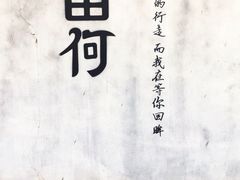 的行走 而我在等你回眸
何